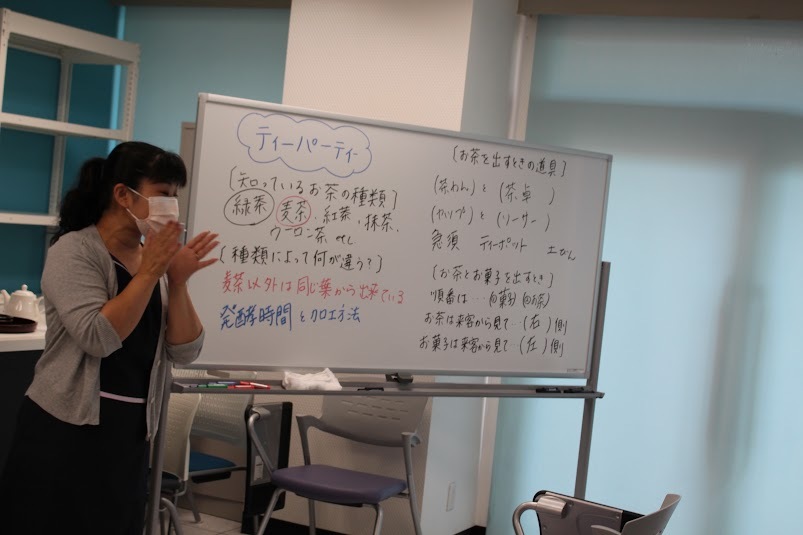 ティーパーティー
〔知っているお茶の種類〕
緑茶 、麦茶、紅茶、抹茶、
ウーロン茶 etc
〔種類によって何が違う?〕
麦茶以外は同じ葉から出来ている
発酵時間と加工方法
〔お茶を出すときの道具〕
(茶わん)と(茶卓)
(カップ)と(ソーサー)
急須 ティーポット おぼん
〔お茶とお菓子を出すとき〕
順番は…①(お菓子)②(お茶)
お茶は来客から見て…(右)側
お菓子は来客から見て…(左)側